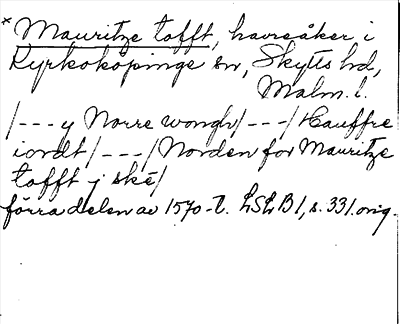 * Mauritze tofft, havreåker i
Kyrkoköpinge sn, Skytts hd,
Malm. l.
/--- y Norre wongh/---/Hauffre
iordt/---/Norden for Mauritze
tofft j ské/
förra delen av 1570-t. LSLB1, s. 331. orig.